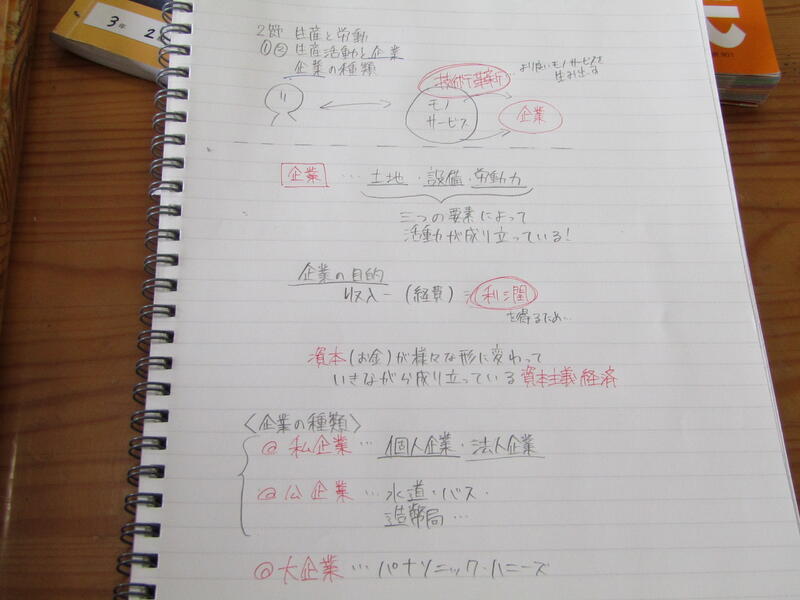 3年 2
2節 生産と労動
①② 生産活動と企業
企業の種類
技術革新 …より良いモノサービスを
生み出す
モノ
サービス
企業
企業 … 土地・設備・労動力
三つの要素によって
活動が成り立っている!
企業の目的
収入－(経費)＝利潤
を得るため…
資本(お金)が様々な形に変わって
いきながら成り立っている資本主義経済
〈企業の種類〉
◎私企業 … 個人企業・法人企業
◎公企業 … 水道・バス・
造幣局 …
◎大企業 … パナソニック・ハニーズ